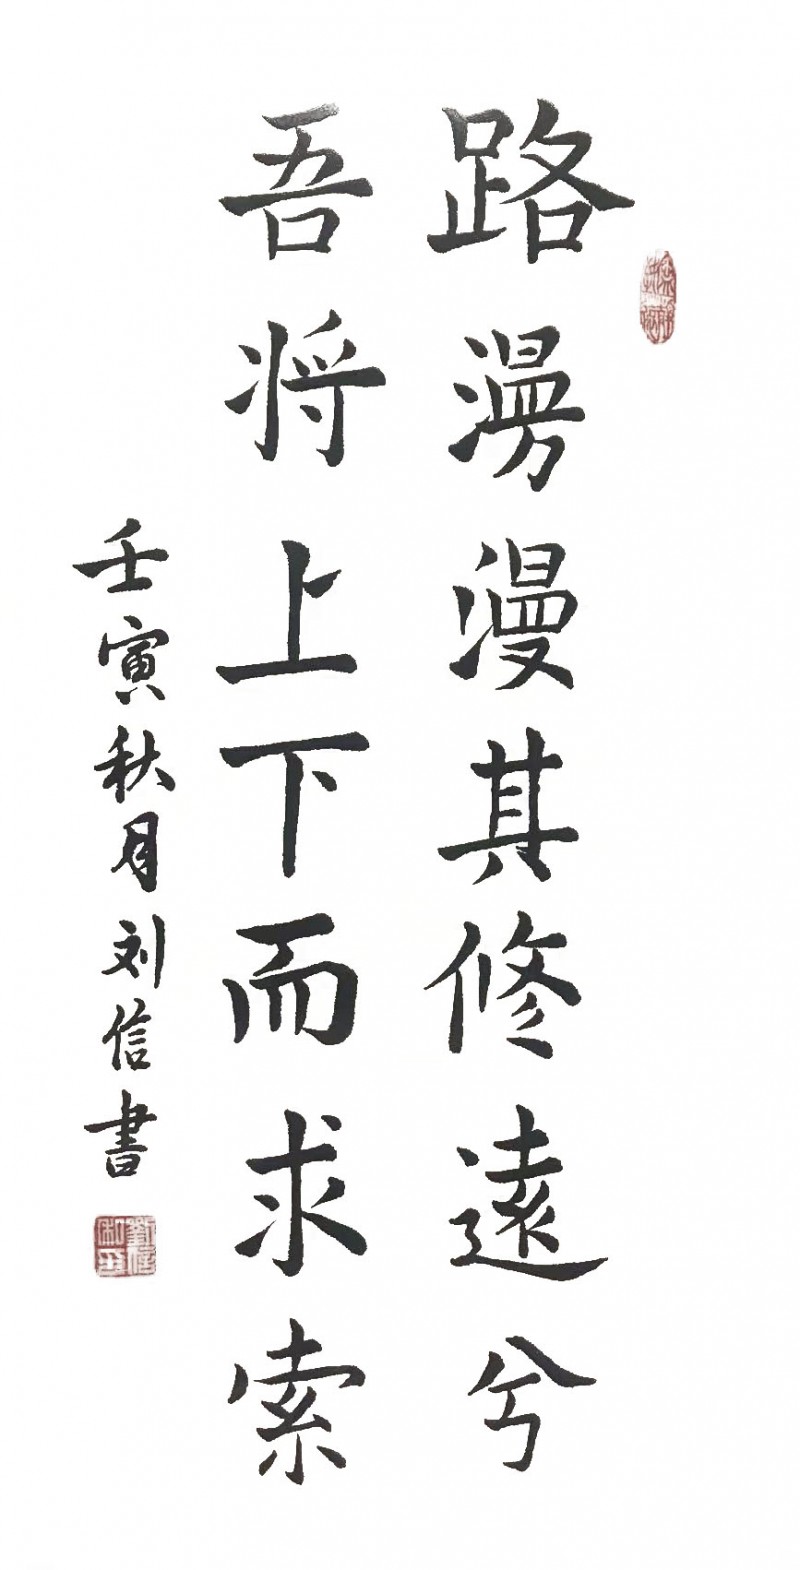 路漫漫其修遠兮
吾将上下而求索
壬寅秋月刘信書